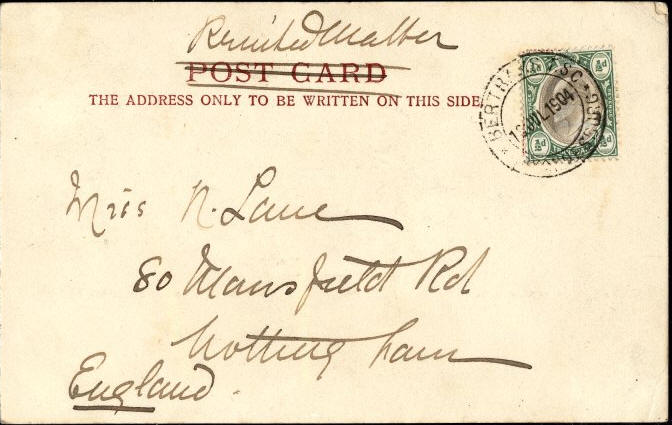 Printed Matter
POST CARD
THE ADDRESS ONLY TO BE WRITTEN ON THIS SIDE
½d ½d
12 JUL 1904
½d ½d
Miss N. Lane
80 Mansfield Rd
Nottingham
England